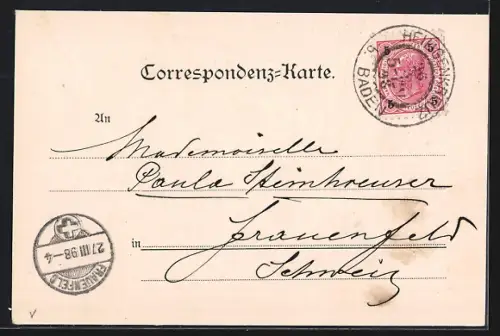 Correspondenz-Karte.
An
Mademoiselle
Paula Steinhreuser
in Frauenfeld
Schweiz
BADEN
5 5
27 III 98-4
FRAUENFELD